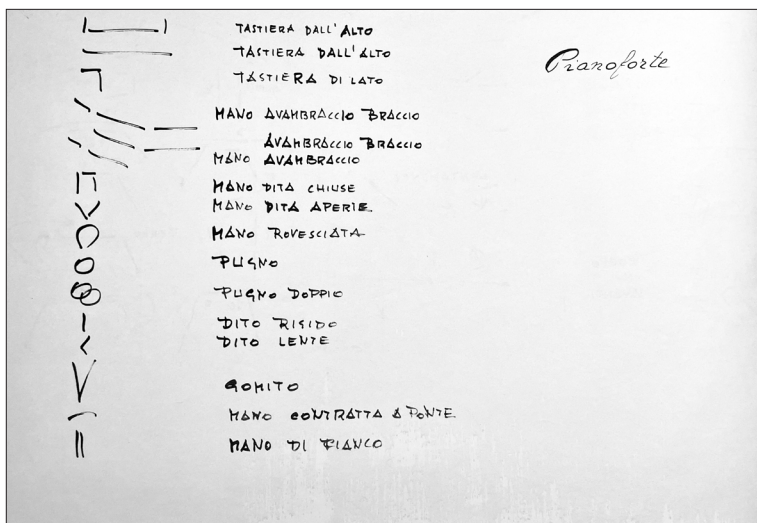 TASTIERA DALL'ALTO
TASTIERA DALL'ALTO
Pianoforte
TASTIERA DI LATO
MANO AVAMBRACCIO BRACCIO
AVAMBRACCIO BRACCIO
MANO AVAMBRACCIO
MANO DITA CHIUSE
MANO DITA APERTE
MANO ROVESCIATA
PUGNO
PUGNO DOPPIO
DITO RIGIDO
DITO LENTE
GOMITO
MANO CONTRATTA A PONTE
MANO DI FIANCO